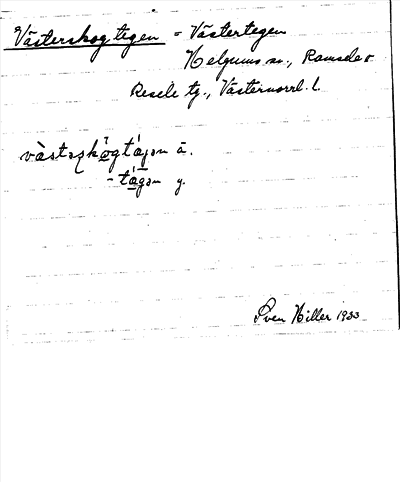 Västerskogtegen = Västertegen
Helgums sn., Ramsele o
Resele tg., Västernorrl. l.
västəʂkògtá̱gən ä.
-tá̱gən y.
Sven Hiller 1933